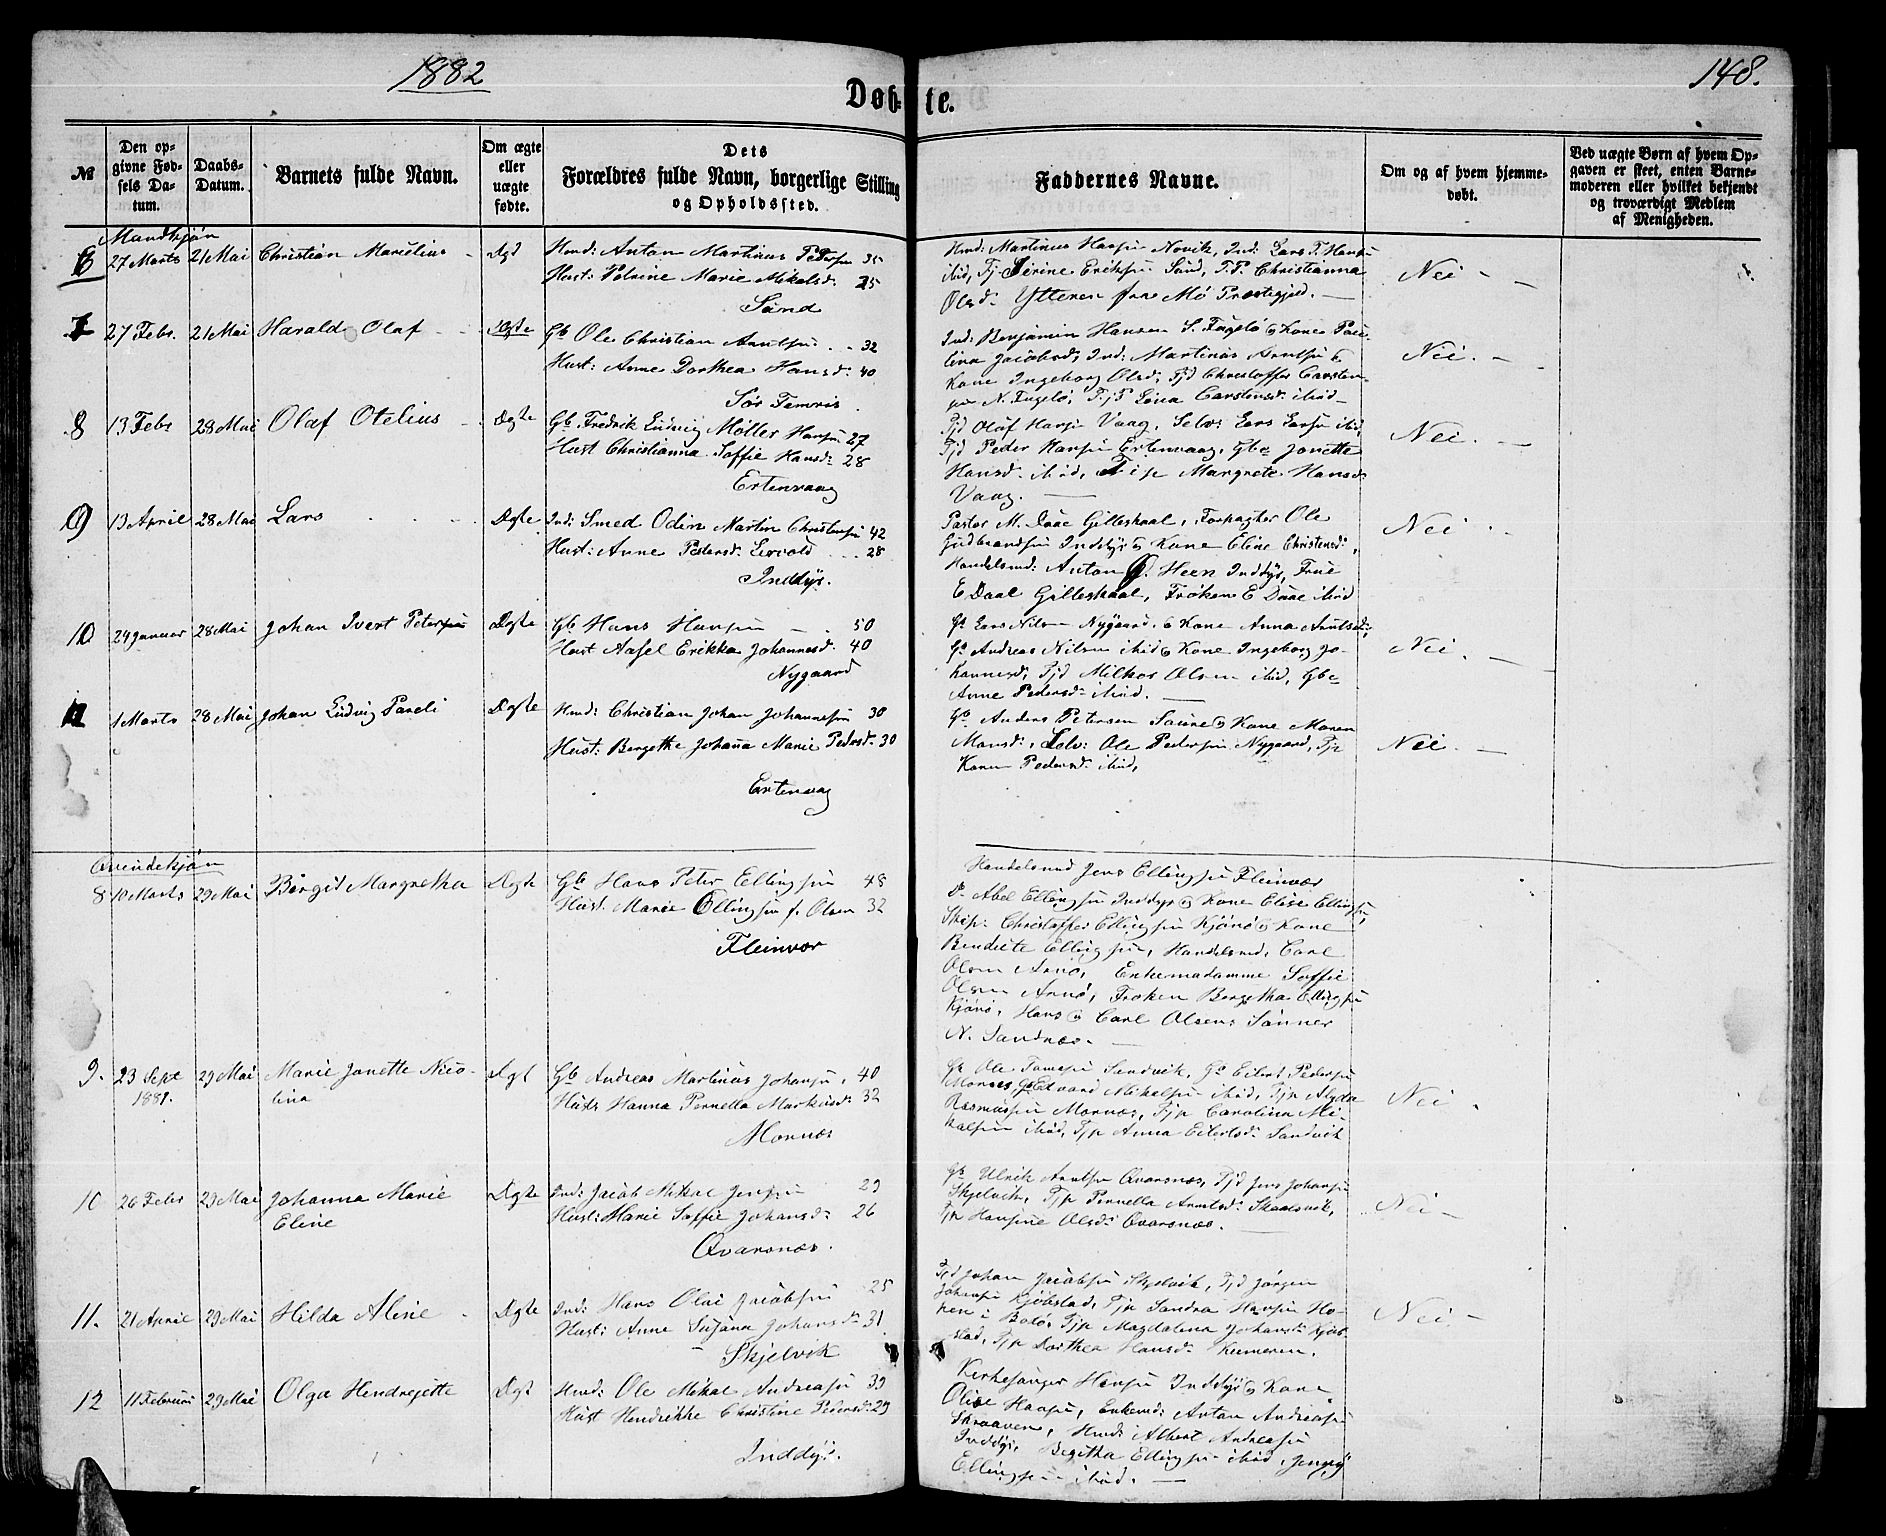 1882
148.
Døbte.
№
Den opgivne Fødsels Datum.
Daabs-Datum.
Barnets fulde Navn.
Om ægte eller uægte fødte.
Dets Forældres fulde Navn, borgerlige Stilling og Opholdssted.
Faddernes Navne.
Om og af hvem hjemmedøbt.
Ved uægte Børn af hvem Opgaven er skeet, enten Barnemoderen eller hvilket bekjendt og troværdigt Medlem af Menigheden.
Mandkjøn
6 27 Marts 21 Mai Christian Marelius Ægt
Hmd: Anton Martinus Pedersen 35
Hust: Petrine Marie Mikalsd: 25
Sund
Hmd: Martinus Hansen Novik, Ind: Lars T. Hansen
ibid, Tj. Serine Eriksen Sund, T.P. Christianna
Olsd: Ytteren fra Mo Præstegjeld.
Nei
7 27 Febr. 21 Mai Harald Olaf Ægte
Gb Ole Christian Arntsen 32
Hust: Anne Dorthea Hansd: 40
Sør Femris
Ind: Benjamin Hansen S. Fugelø & Kone Pau-
lina Jacobsd, Ind: Martinas Arntsen &
Kone Ingeborg Olsd, Tjd Christoffer Carsten-
sen N. Fugelø, T.j.P Lena Carstensd: ibid
Nei.
8 13 Febr 28 Mai Olaf Otelius Ægte
Gb. Fredrik Ludvig Møller Hansen 27
Hust Christianna Soffie Hansd: 28
Ertenvaag
Tjd Olaf Hansen Vaag, Selvs: Lars Larsen ibid,
Tjd Peder Hansen Ertenvaag, Gbe Jonette
Hansd: ibid, T j p Margrete Hansd:
Vaag.
Nei.
9 13 April 28 Mai Lars Ægte
Ind: Smed Odin Martin Christensen 42
Hust: Anne Pedersd: Leivold 28
Inddyr.
Pastor M. Daae Gilleskaal, Forpagter Ole
Gudbrandsen Inddyr & Kone Eline Christensd:,
Handelsmd: Anton O. Heen Inddyr, Frue
E Daae Gilleskaal, Frøken E Daae ibid
Nei
10 24 Januar 28 Mai Johan Ivert Petersen Ægte
Gb Hans Hansen 50
Hust Aasel Erikka Johannesd: 40
Nygaard
Gb Lars Nilsen Nygaard, & Kone Anna Arntsd:,
Gb Andreas Nilsen ibid & Kone Ingeborg Jo-
hannesd, Tjd Milkor Olsen ibid, Gbe
Anne Pedersd: ibid.
Nei.
11 1 Marts 28 Mai Johan Ludvig Pareli Ægte
Hmd: Christian Johan Johannesen 30
Hust: Bergethe Johana Marie Pedersd: 30
Ertenvag
Gb Anders Petersen Saure & Kone Maren
Monsd:, Selv: Ole Pedersen Nygaard, Tjp
Karen Pedersd: ibid,
Nei.
Qvindekjøn
8 10 Marts 29 Mai Birgit Margretha Ægte
Gb Hans Peter Ellingsen 48
Hust. Marie Ellingsen f. Olsen 32
Fleinvær
Handelsmd Jens Ellingsen Fleinvær
D: Abel Ellingsen Inddyr & Kone Elise Ellingsen,
Skip: Christoffer Ellingsen Kjønø & Kone
Bendicte Ellingsen, Handelsmd. Carl
Olsen Arnø, Enkemadamme Soffie
Olsen Arnø, Frøken Bergetha Ellingsen
Kjønø, Hans & Carl Olsens Sønner
N. Sandnæs.
9. 23 Sept 1881. 29 Mai Marie Janette Nico-
lina Ægt
Gb Andreas Martinus Johansen, 40
Hust Hanna Pernella Markusd: 32
Mornæs
Gb Ole Tomesen Sandvik, Gb Eilert Pedersen
Mornæs, Gb Edvard Mikalsen ibid, Tjp Alyda
Rasmussen Mornæs, Tjp Carolina Mi-
kalsen ibid, Tjp Anna Eilertsd: Sandvik
Nei.
10 26 Febr 29 Mai Johanna Marie
Eline Ægte
Ind: Jacob Mikal Jensen 29
Hust: Marie Soffie Johansd: 26
Qvarsnæs.
Gb Ulrik Arntsen Qvarsnæs, Tjd Jens Johansen
Skjelvik, Tjp Pernella Arntsd: Skaalsvik,
Tjp Hansine Olsd: Qvarsnæs.
Nei
11. 21 April 29 Mai Hilda Aline Ægte
Ind: Hans Olai Jacobsen 25
Hust: Anne Susana Johansd: 31
Skjelvik
Tjd Johan Jacobsen Skjelvik, Tjd Jørgen
Johansen Kjøbstad, Tjp Sandra Hansen Ho-
pen i Bodø, Tjp Magdalena Johansd: Kjøb-
stad, Tjp Dorthea Hansd:
Nei.
12 11 Februar 29 Mai Olga Hendrejette Ægt
Hmd: Ole Mikal Andreasen 39
Hust Hendrikke Christine Pedersd: 29
Inddyr.
Kirkesanger Hansen Inddyr & Kone
Olise Hansen, Enkemd: Anton Andreasen
Skraaven, Hmd: Albert Andreasen
Inddyr, Begitha Ellingsen ibid, Jenny
Ellingsen ibid.